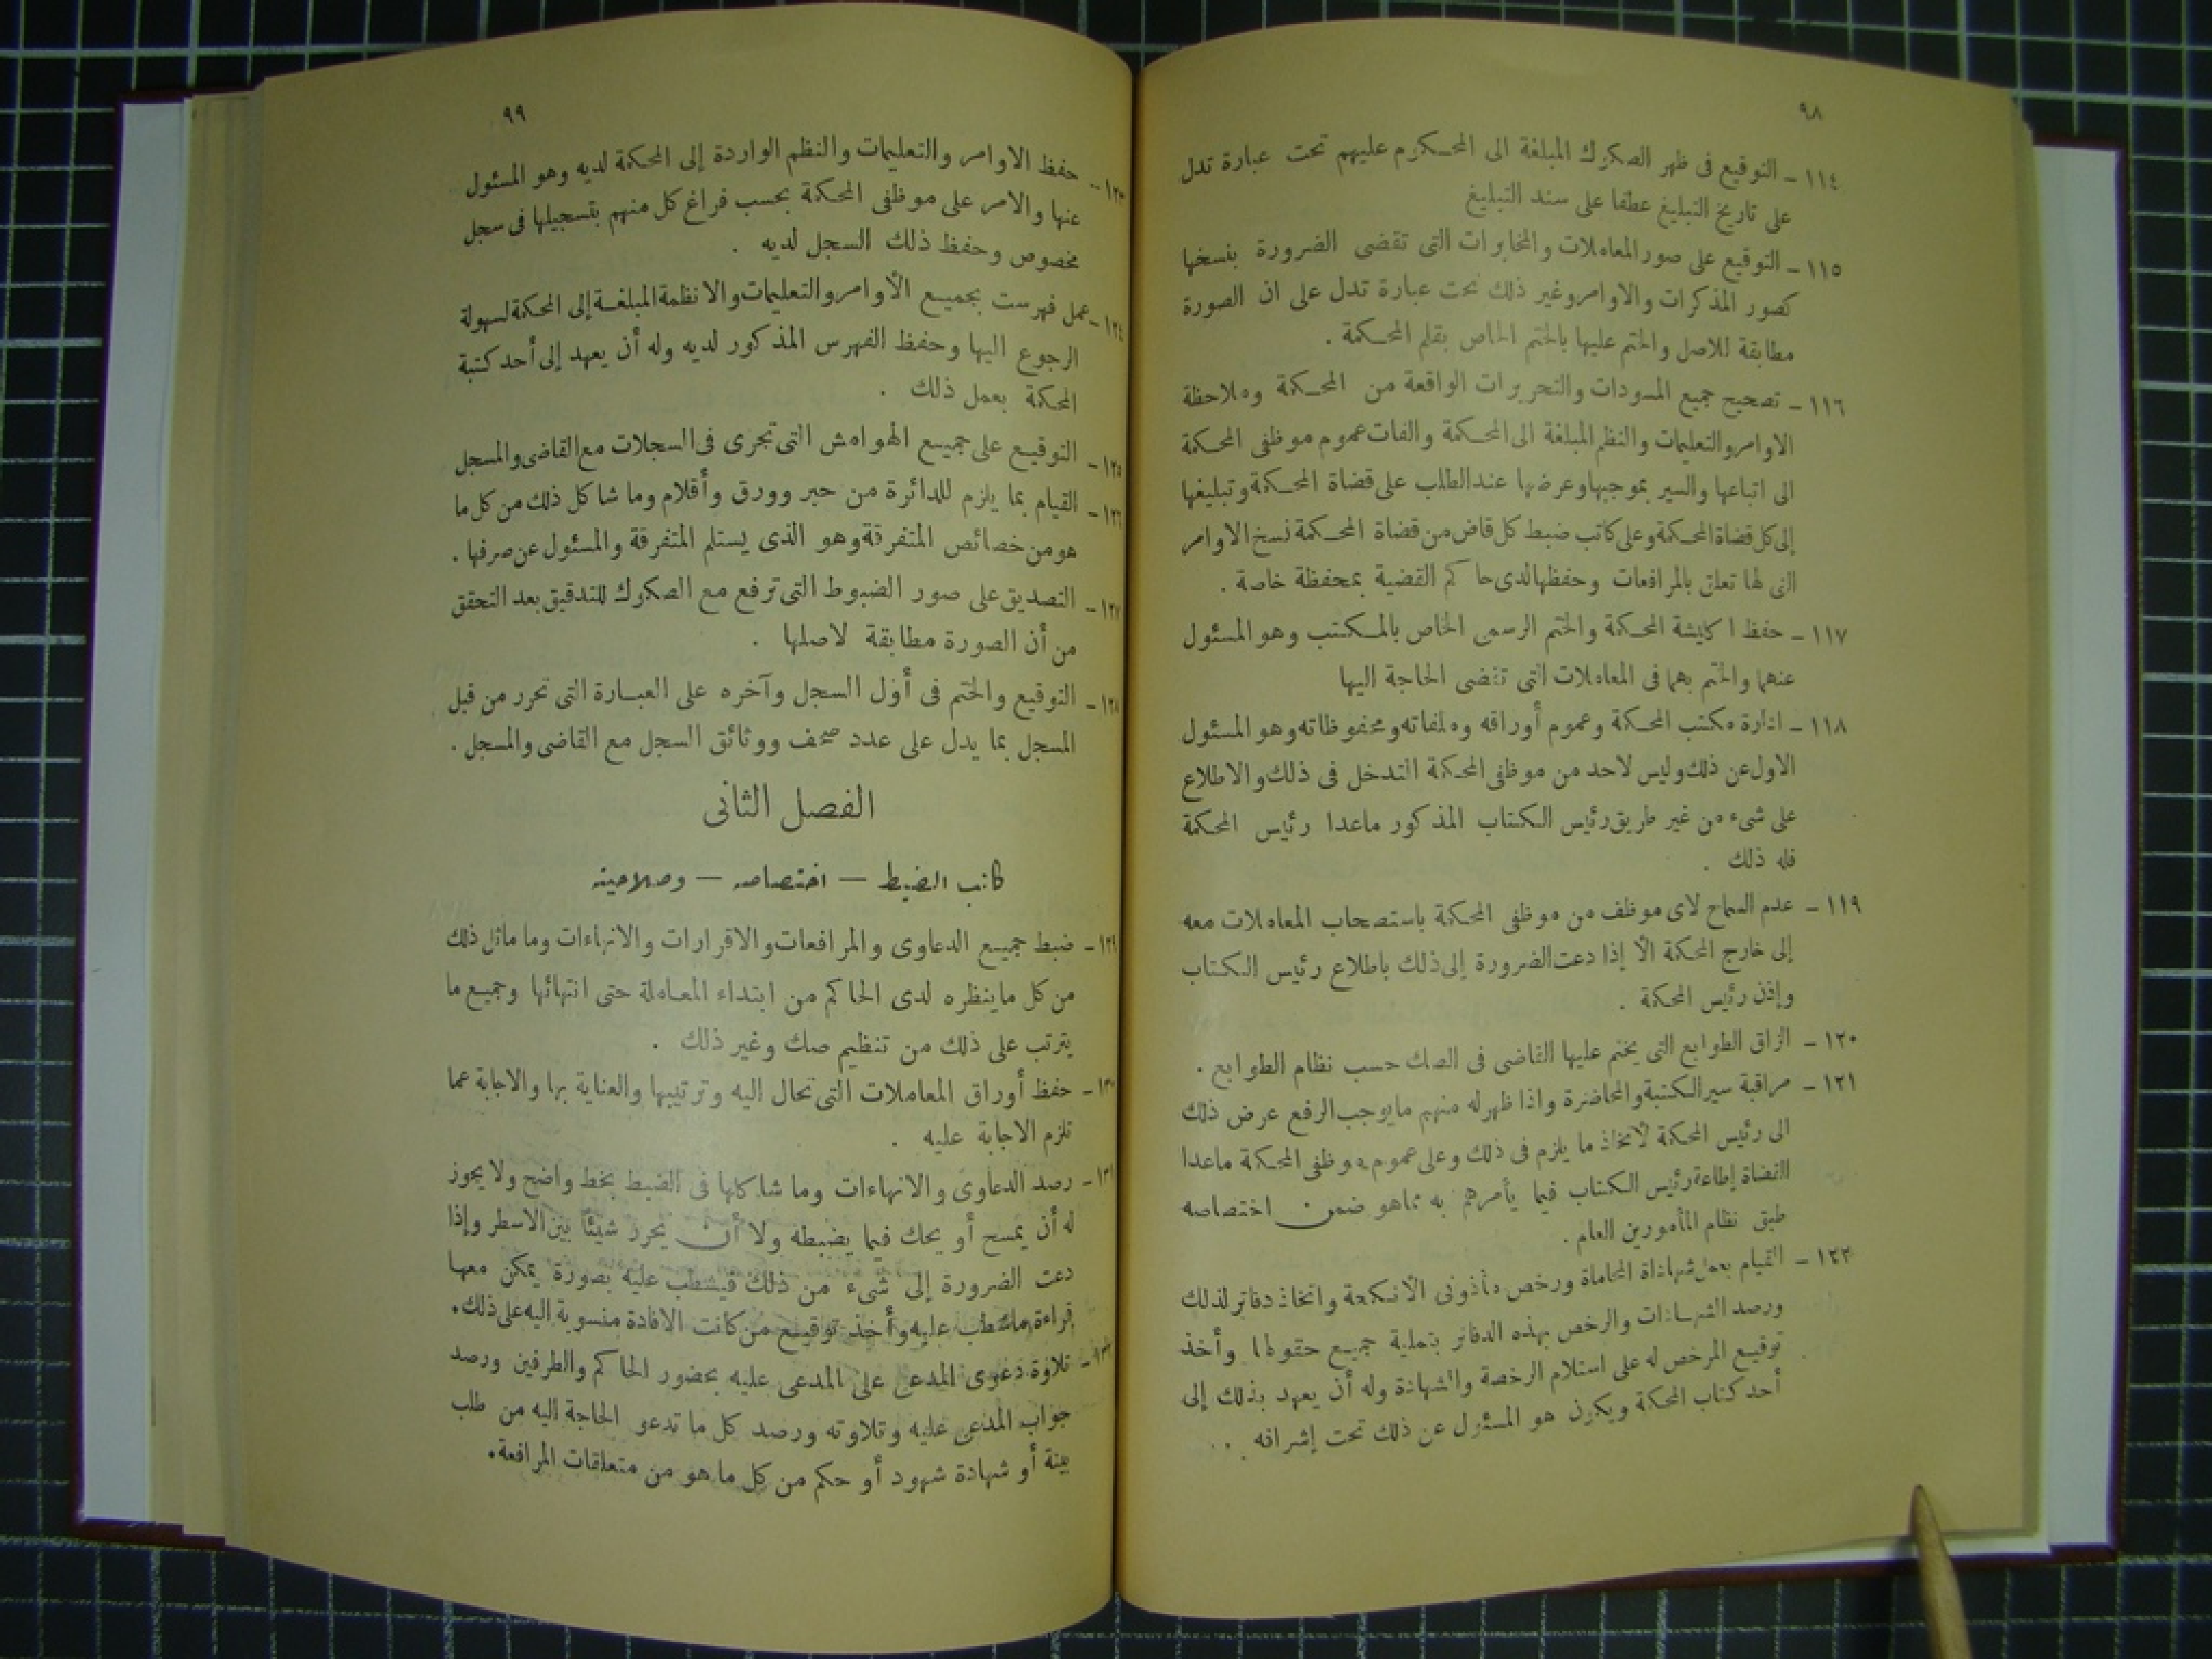 ٩٨
١١٤ - التوقيع فى ظهر الصكوك المبلغة الى المحكوم عليهم تحت عبارة تدل
على تاريخ التبليغ عطفا على سند التبليغ
١١٥ - التوقيع على صور المعاملات والمخابرات التى تقضى الضرورة بنسخها
كصور المذكرات والاوامر وغير ذلك تحت عبارة تدل على ان الصورة
مطابقة للاصل والختم عليها بالختم الخاص بقلم المحكمة .
١١٦ - تصحيح جميع المسودات والتحريرات الواقعة من المحكمة وملاحظة
الاوامر والتعليمات والنظم المبلغة الى المحكمة والفات عموم موظفى المحكمة
الى اتباعها والسير بموجبها وعرضها عند الطلب على قضاة المحكمة وتبليغها
إلى كل قضاة المحكمة وعلى كاتب ضبط كل قاض من قضاة المحكمة نسخ الاوامر
التى لها تعلق بالمرافعات وحفظها لدى حاكم القضية بمحفظة خاصة .
١١٧ - حفظ اكليشة المحكمة والختم الرسمى الخاص بالمكتب وهو المسئول
عنهما والختم بهما فى المعاملات التى تقضى الحاجة اليها
١١٨ - ادارة مكتب المحكمة وعموم أوراقه وملفاته ومحفوظاته وهو المسئول
الاول عن ذلك وليس لاحد من موظفى المحكمة التدخل فى ذلك والاطلاع
على شىء من غير طريق رئيس الكتاب المذكور ماعدا رئيس المحكمة
فله ذلك .
١١٩ - عدم السماح لاى موظف من موظفى المحكمة باستصحاب المعاملات معه
إلى خارج المحكمة الا إذا دعت الضرورة إلى ذلك باطلاع رئيس الكتاب
وإذن رئيس المحكمة .
١٢٠ - الزاق الطوابع التى يختم عليها القاضى فى الصك حسب نظام الطوابع .
١٢١ - مراقبة سير الكتبة والمحاضرة واذا ظهر له منهم مايوجب الرفع عرض ذلك
الى رئيس المحكمة لاتخاذ ما يلزم فى ذلك وعلى عموم موظفى المحكمة ماعدا
القضاة إطاعة رئيس الكتاب فيما يأمرهم به مماهو ضمن اختصاصه
طبق نظام المأمورين العام .
١٢٢ - القيام بعمل شهاداة المحاماة ورخص مأذونى الأنكحة واتخاذ دفاتر لذلك
ورصد الشهادات والرخص بهذه الدفاتر بتعلية جميع حقولها وأخذ
توقيع المرخص له على استلام الرخصة والشهادة وله أن يعهد بذلك إلى
أحد كتاب المحكمة ويكون هو المسئول عن ذلك تحت إشرافه .
٩٩
١٢٣ - حفظ الاوامر والتعليمات والنظم الواردة إلى المحكمة لديه وهو المسئول
عنها والامر على موظفى المحكمة بحسب فراغ كل منهم بتسجيلها فى سجل
مخصوص وحفظ ذلك السجل لديه .
١٢٤ - عمل فهرست بجميع الأوامر والتعليمات والانظمة المبلغة إلى المحكمة لسهولة
الرجوع اليها وحفظ الفهرس المذكور لديه وله أن يعهد إلى أحد كتبة
المحكمة بعمل ذلك .
١٢٥ - التوقيع على جميع الهوامش التى تجرى فى السجلات مع القاضى والمسجل
١٢٦ - القيام بما يلزم للدائرة من حبر وورق وأقلام وما شاكل ذلك من كل ما
هو من خصائص المتفرقة وهو الذى يستلم المتفرقة والمسئول عن صرفها .
١٢٧ - التصديق على صور الضبوط التى ترفع مع الصكوك للتدقيق بعد التحقق
من أن الصورة مطابقة لاصلها .
١٢٨ - التوقيع والختم فى أول السجل وآخره على العبارة التى تحرر من قبل
المسجل بما يدل على عدد صحف ووثائق السجل مع القاضى والمسجل .
الفصل الثانى
كاتب الضبط – اختصاصه – وصلاحيته
١٢٩ - ضبط جميع الدعاوى والمرافعات والاقرارات والانهاءات وما ماثل ذلك
من كل ماينظره لدى الحاكم من ابتداء المعاملة حتى انتهائها وجميع ما
يترتب على ذلك من تنظيم صك وغير ذلك .
١٣٠ - حفظ أوراق المعاملات التى تحال اليه وترتيبها والعناية بها والاجابة عما
تلزم الاجابة عليه .
١٣١ - رصد الدعاوى والانهاءات وما شاكلها فى الضبط بخط واضح ولا يجوز
له أن يمسح أو يحك فيما يضبطه ولا أن يحرر شيئا بين الاسطر وإذا
دعت الضرورة إلى شىء من ذلك فيشطب عليه بصورة يمكن معها
قراءة ماشطب عليه وأخذ توقيع من كانت الافادة منسوبة اليه على ذلك .
١٣٢ - تلاوة دعوى المدعى على المدعى عليه بحضور الحاكم والطرفين ورصد
جواب المدعى عليه وتلاوته ورصد كل ما تدعو الحاجة اليه من طلب
بينة أو شهادة شهود أو حكم من كل ما هو من متعلقات المرافعة .